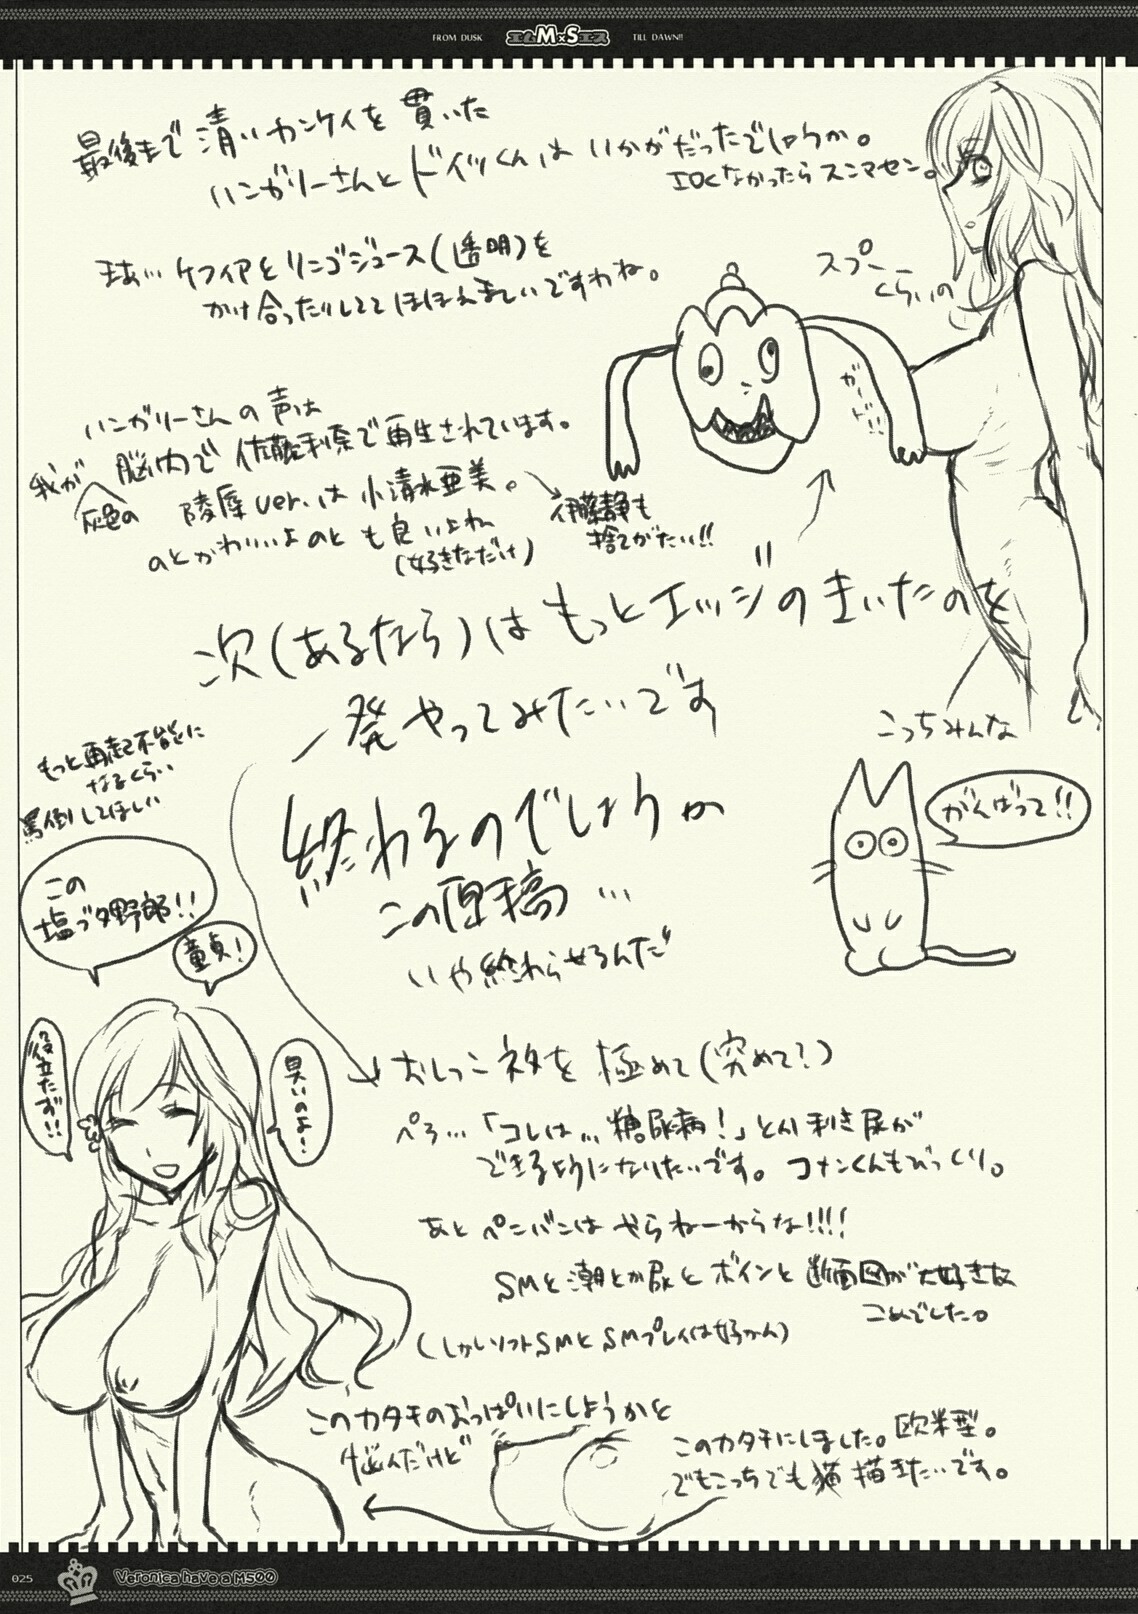 FROM DUSK
エムM×Sエス
TILL DAWN!!
最後まで清いカンケイを貫いた
ハンガリーさんとドイツくんはいかがだったでしょうか。
エロくなかったらスンマセン。
まあ…ケフィアとリンゴジュース(透明)を
かけ合ったりしててほほえましいですわね。
スプー
くらいの
ガードド
ハンガリーさんの声は
我が脳内で佐藤利奈で再生されています。
灰色の
陵辱ver.は小清水亜美。
のとかわいいよのとも良いよね
(好きなだけ)
伊藤静も
捨てがたい!!
次(あるなら)はもっとエッジのきいたのを
一発やってみたいです
こっちみんな
がんばって!!
終わるのでしょうか
この原稿…
いや終わらせるんだ
もっと再起不能に
なるくらい
罵倒してほしい
この
塩ブタ野郎!!
童貞!
役立たず!!
臭いのよ!
おしっこネタを極めて(究めて?)
ペろ…「コレは…糖尿病!」とか利き尿が
できるようになりたいです。コナンくんもびっくり。
あとペニバンはやらねーからな!!!!
SMと潮とか尿とボインと断面図が大好きな
こめでした。
(しかしソフトSMとSMプレイは好かん)
このカタチのおっぱいにしようかと
悩んだけど
このカタチにしました。欧米型。
でもこっちでも猫描きたいです。
025
Veronica have a M500